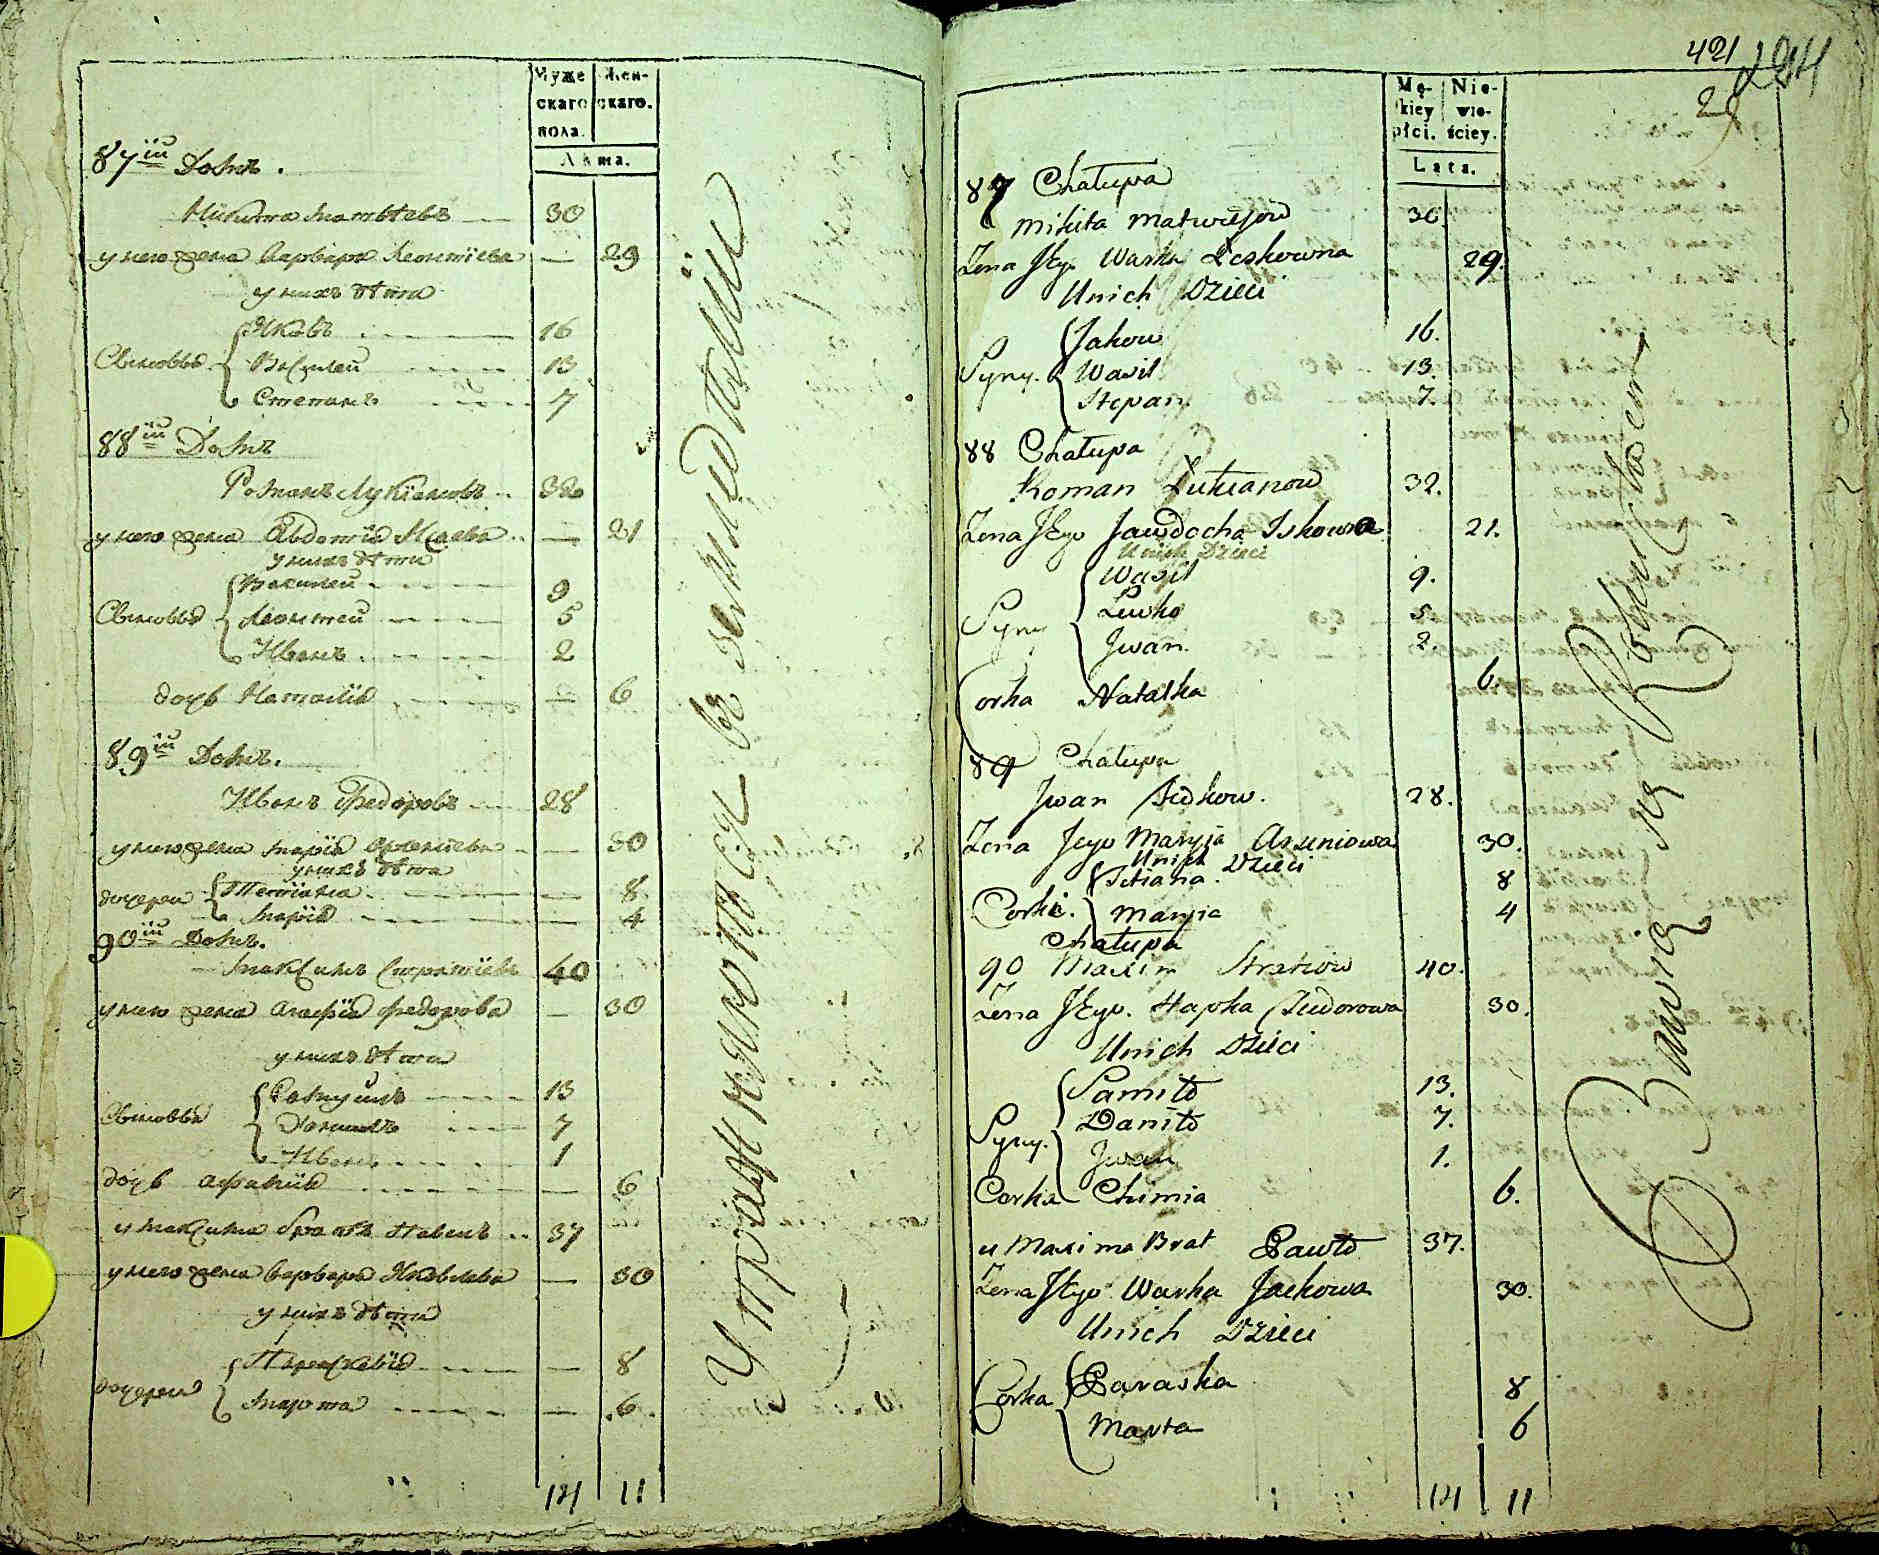 Муже
скаго
пола.
Жен-
скаго.
Лѣта.
87ій Домъ.
Никита Матвѣевъ 30
у него жена Варвара Леонтіева — 29
у нихъ дѣти
Яковъ 16
Сыновья Василей 13
Степанъ 7
88ій Домъ
Романъ Лукіановъ 32
у него жена Авдотія Исаева — 21
у нихъ дѣти
Василей 9
Сыновья Леонтей 5
Иванъ 2
дочь Наталія — 6
89ій Домъ.
Иванъ Федоровъ 28
у него жена Марія — 30
у нихъ дѣти
дочери Тетіяна — 8
Марія — 4
90ій Домъ.
Максимъ Стратіевъ 40
у него жена Агафія Федорова — 30
у нихъ дѣти
13
Сыновья Даниилъ 7
Иванъ 1
дочь Афимія — 6
у Максима братъ Павелъ 37
у него жена Варвара Яковлева — 30
у нихъ дѣти
Параскевія — 8
дочери Марта — 6
14 11
Упражняются въ земледѣліи
421
294
29
Mę-
kiey
płci.
Nie-
wie-
ściey.
Lata.
87 Chałupa
Mikita Matwiejow 30
Żona Jego Warka Leskowna 29.
Unich Dzieci
Jakow 16.
Syny. Wasil 13.
Stepan 7.
88 Chałupa
Roman Łukianow 32.
Żona Jego Jawdocha Iskowa 21.
Unich Dzieci
Wasil 9.
Syny Lewko 5.
Jwan. 2.
Corka Natalka 6.
89 Chałupa
Jwan Fedkow. 28.
Żona Jego Maryja Arseniowa 30.
Unich Dzieci
Tetiana. 8
Corki. Maryia 4
Chałupa
90 Maxim Stratiow 40.
Żona Jego. Hapka Fedorowa 30.
Unich Dzieci
Samiło 13.
Syny. Daniło 7.
Jwan 1.
Corka Chimia 6.
u Maxima Brat Pawło 37.
Żona Jego Warka Jackowa 30.
Unich Dzieci
Corka Paraska 8
Marta 6
14 11
Bawią się Rolnictwem